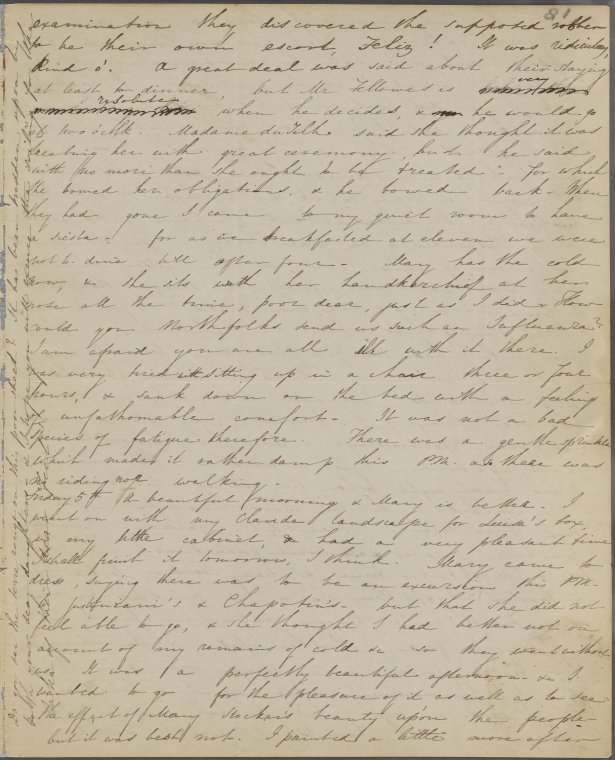 81
examination they discovered the supposed robber
to be their own escort, Feliz! It was ridiculous,
kind o'. A great deal was said about their staying
at least to dinner, but Mr Fellowes is very
resolute when he decides, & he would go
at two o'clk. Madame du said she thought it was
treating her with great ceremony, but he said
with no more than she ought to be treated - For which
she bowed her obligations, & he bowed back. When
they had gone I came to my quiet room to have
a siesta - for as we breakfasted at eleven we were
not to dine till after four - Mary has the cold
now, & she sits with her handkerchief at her
nose all the time, poor dear, just as I did - How
could you North folks send us such an Influenza?
I am afraid you are all ill with it there. I
was very tired with sitting up in a chair three or four
hours, & sank down on the bed with a feeling
of unfathomable comfort - It was not a bad
species of fatigue therefore. There was a gentle sprinkle
which made it rather damp this P.M. as there was
no riding nor walking -
Friday 5th A beautiful morning & Mary is better - I
went on with my Claude landscape for Luisa's box,
in my little cabinet, & had a very pleasant time
I shall finish it tomorrow, I think. Mary came to
dress, saying there was to be an excursion this P.M.
to & Chapotin's - but that she did not
feel able to go, & she thought I had better not on
account of my remains of cold &c so they went without
us. It was a perfectly beautiful afternoon - & I
wanted to go for the pleasure of it as well as to see
the effect of Mary beauty upon the people
but it was best not. I painted a little more after